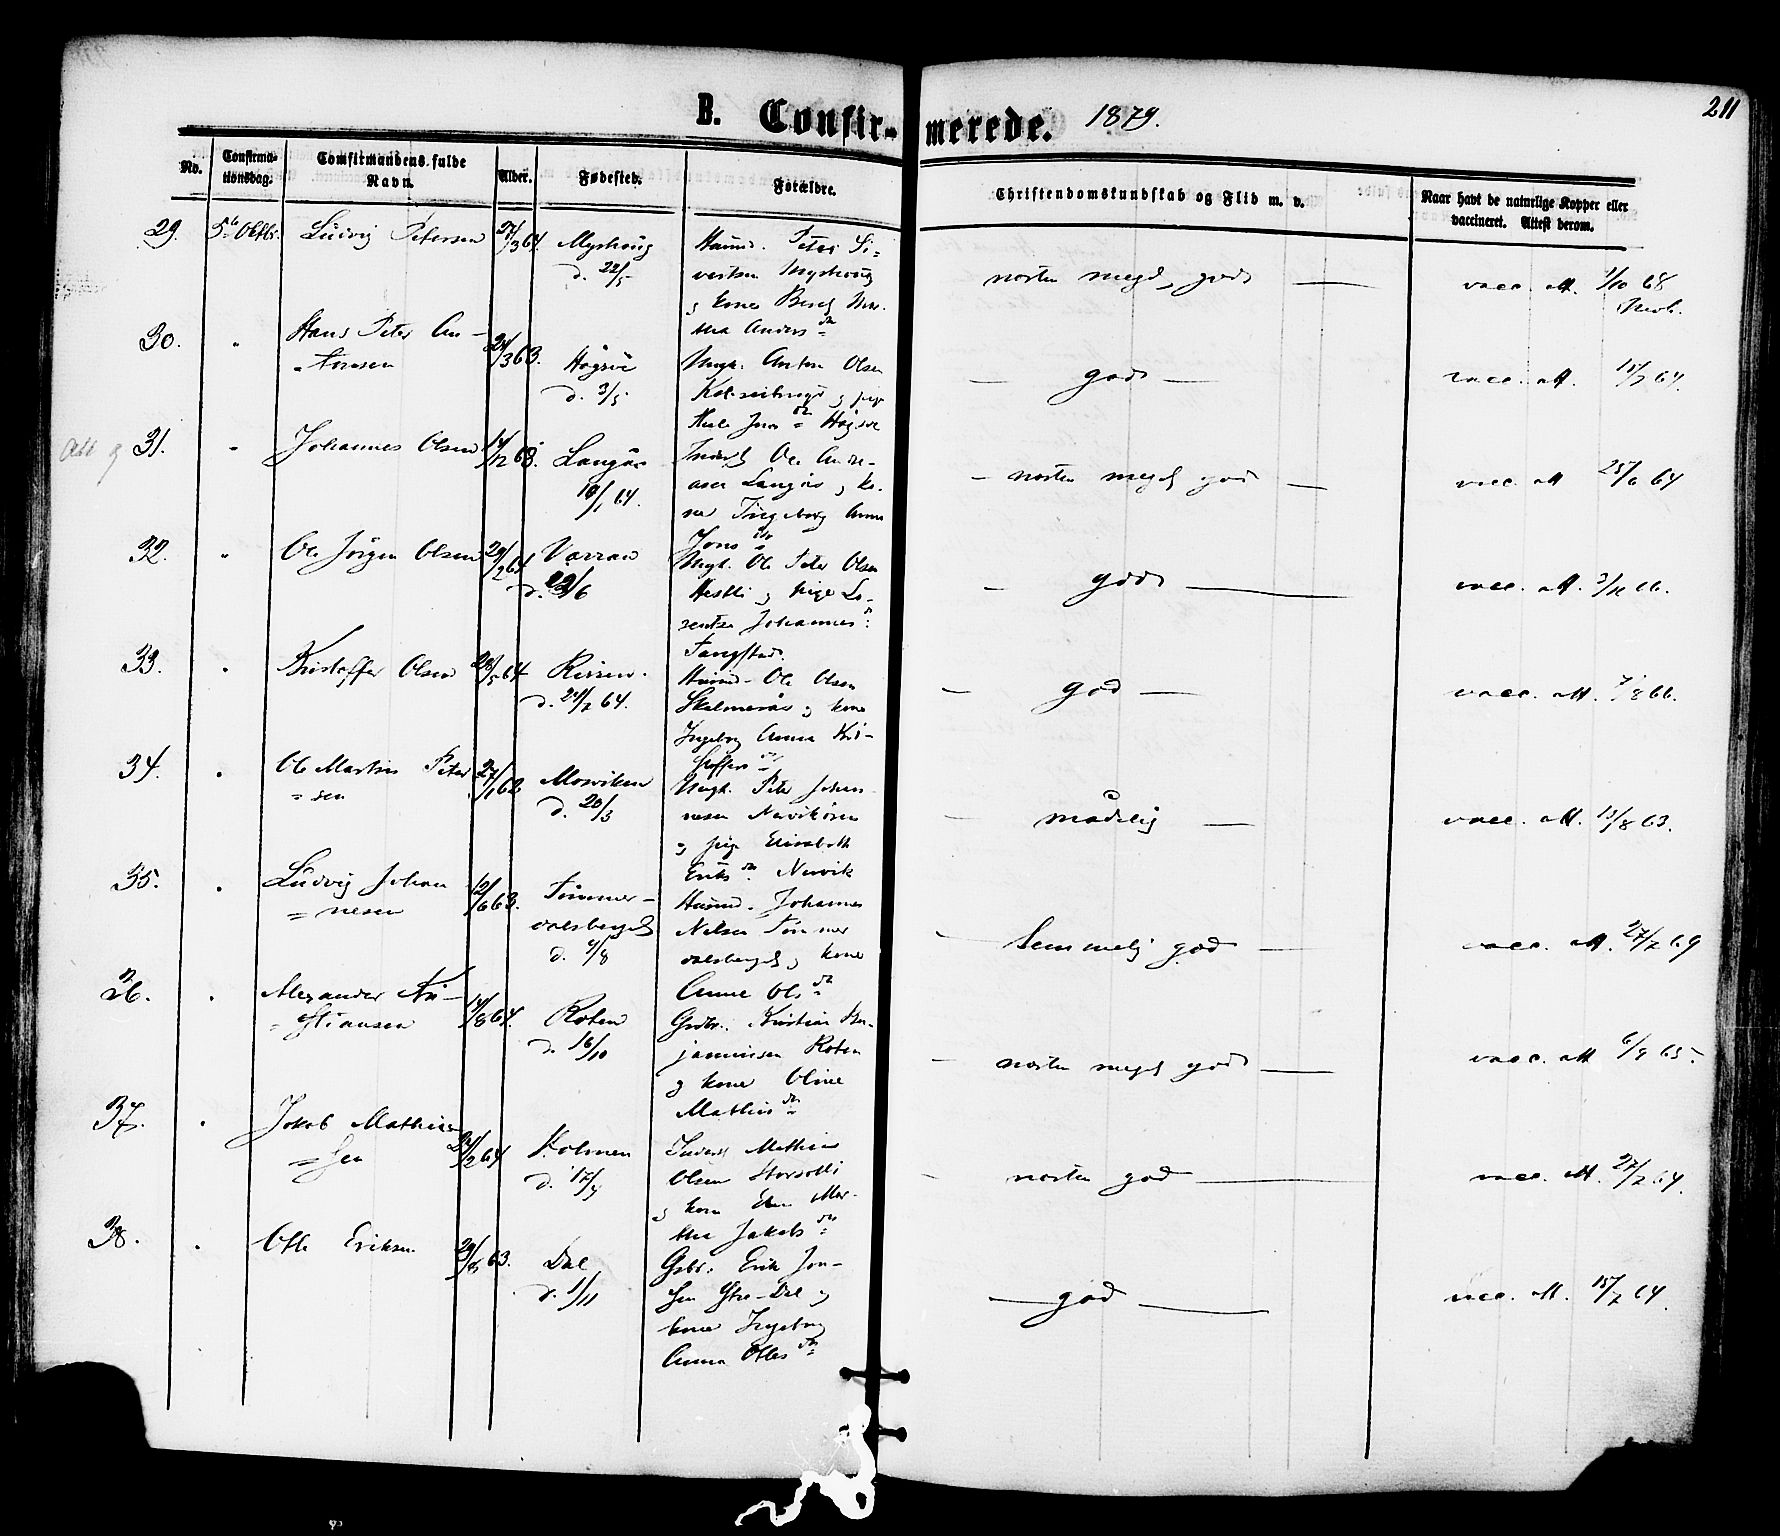 B. Confir- merede. 1879.
211
No.
Confirma-
tionsdag.
Comfirmandens fulde
Navn.
Alder.
Fødested.
Forældre.
Christendomskundskab og Flid m. v.
Naar havt de naturlige Kopper eller
vaccineret. Attest derom.
29. 5te Oktbr. Ludvig Petersen 27/3 64.
d. 22/5
Huusm. Peter Si=
vertsen
og kone Beret Mar-
tha Anders dr
næsten meget godt
vacc. att. 1/10 68
30. " Hans Peter An-
=tonsen 24/3 63.
d. 3/5
Ungk. Anton Olsen
og pige
godt
vacc. att. 15/7 64.
31. " Johannes Olsen 14/12 63. Langås
10/1 64.
Inderst Ole Andre-
asen Langås og ko-
ne Ingeborg Anna
Jons dr
næsten meget god
vacc. att 25/6 64
32. " Ole Jörgen Olsen 29/2 64 Varran
Ungk. Ole Peter Olsen
og pige Lo-
rentse Johannes dr
godt
vacc. att.
33. " Kristoffer Olsen 28/5 64 Rissen.
d. 24/7 64.
Huusm. Ole Olsen
og kone
Ingeborg Anna Kri-
stoffers dr
god
vacc. att. 7/8 66.
34. " Ole Martin Peter
=sen 27/1 62 Mosviken
d. 20/3
Ungk. Peter Johan-
nesen
og pige Elisabeth
Eriks dr. Nervik
mådelig
vacc. att. 13/8 63.
35. " Ludvig Johan
=nesen 12/6 63. Tömmer-
dalsberget
d. 4/8
Huusm. Johannes
Nilsen Tömmer
dalsberget og kone
Anne Ols dr
temmelig god
vacc. att. 27/7 69
36. " Alexander Kri-
=stiansen 14/8 64. Roten
d. 16/10
Gbr. Kristian Ben-
jaminsen Roten
og kone Oline
Mathias dr
næsten meget godt
vacc. att 6/9 65.
37. " Jakob Mathias
=sen 24/2 64 Holmen
d. 17/4
Inderst Mathias
Olsen
og kone Ellen Mar-
tha Jakobs dr
næsten god
vacc. att. 27/7 64.
38. " Otte Eriksen 29/8 63. Dal
d. 1/11
Gbr. Erik Jon-
sen Ytre-Dal og
kone Ingeborg
Anna Ottes dr
god
vacc. att. 15/7 64.